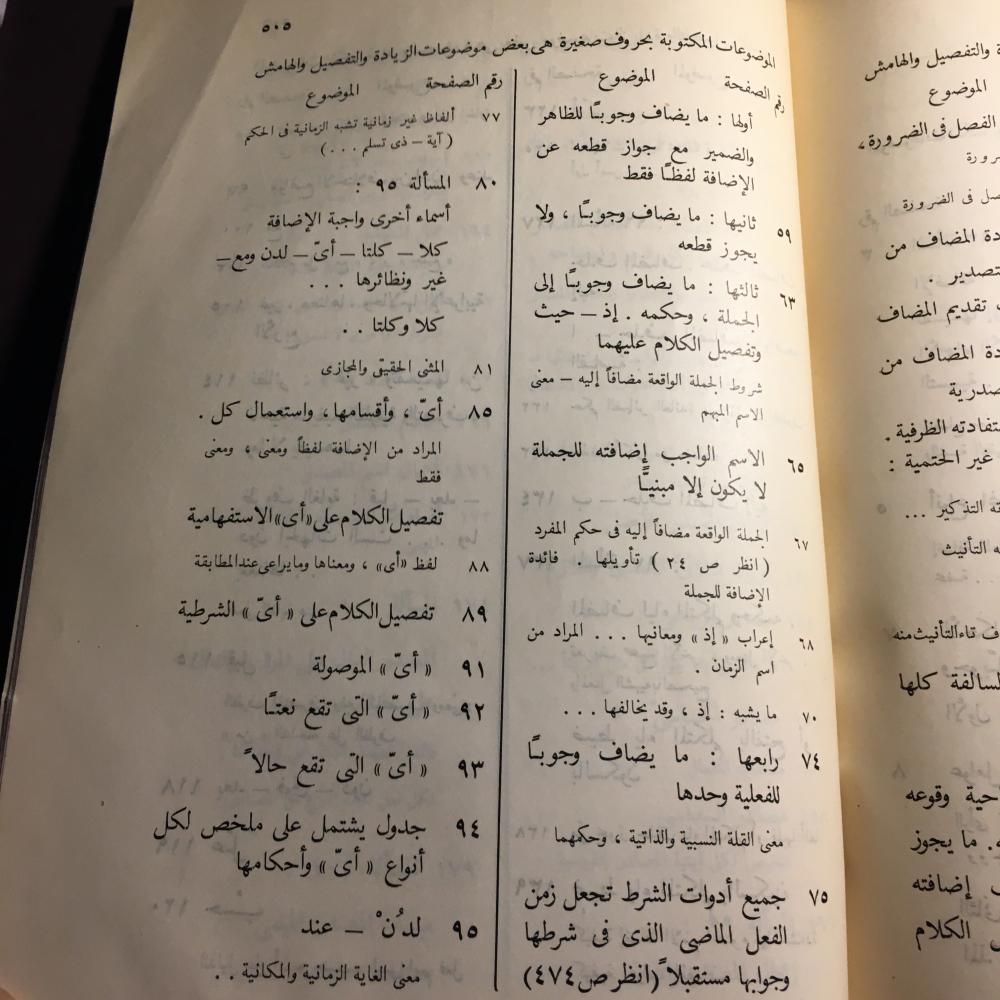 ٥٠٥
الموضوعات المكتوبة بحروف صغيرة هى بعض موضوعات الزيادة والتفصيل والهامش
رقم الصفحة الموضوع
أولها : ما يضاف وجوبًا للظاهر
والضمير مع جواز قطعه عن
الإضافة لفظًا فقط
٥٩ ثانيها : ما يضاف وجوبًا ، ولا
يجوز قطعه
٦٣ ثالثها : ما يضاف وجوبًا إلى
الجملة ، وحكمه . إذ – حيث
وتفصيل الكلام عليهما
شروط الجملة الواقعة مضافاً إليه – معنى
الاسم المبهم
٦٥ الاسم الواجب إضافته للجملة
لا يكون إلا مبنيًّا
٦٧ الجملة الواقعة مضافاً إليه فى حكم المفرد
( انظر ص ٢٤ ) تأويلها . فائدة
الإضافة للجملة
٦٨ إعراب « إذ » ومعانيها . . . المراد من
اسم الزمان .
٧٠ ما يشبه : إذ ، وقد يخالفها . . .
٧٤ رابعها : ما يضاف وجوبًا
للفعلية وحدها
معنى القلة النسبية والذاتية ، وحكمهما
٧٥ جميع أدوات الشرط تجعل زمن
الفعل الماضى الذى فى شرطها
وجوابها مستقبلاً (انظر ص ٤٧٤)
رقم الصفحة الموضوع
٧٧ ألفاظ غير زمانية تشبه الزمانية فى الحكم
( آية – ذى تسلم . . . )
٨٠ المسألة ٩٥ :
أسماء أخرى واجبة الإضافة
كلا – كلتا – أىّ – لدن ومع –
غير ونظائرها . . .
كلا وكلتا . .
٨١ المثنى الحقيقى والمجازى
٨٥ أىّ ، وأقسامها ، واستعمال كل .
المراد من الإضافة لفظاً ومعنى ، ومعنى
فقط
تفصيل الكلام على «أى» الاستفهامية
٨٨ لفظ «أى» ، ومعناها وما يراعى عند المطابقة
٨٩ تفصيل الكلام على « أىّ » الشرطية
٩١ « أىّ » الموصولة
٩٢ « أىّ » التى تقع نعتًا
٩٣ « أىّ » التى تقع حالاً
٩٤ جدول يشتمل على ملخص لكل
أنواع « أىّ » وأحكامها
٩٥ لدُنْ – عند
معنى الغاية الزمانية والمكانية . .
والتفصيل والهامش
الموضوع
الفصل فى الضرورة ،
فى الضرورة
المضاف من
تقديم المضاف
المضاف من
الظرفية .
غير الحتمية :
التذكير . . .
التأنيث
تاء التأنيث منه
السالفة كلها
وقوعه
ما يجوز
إضافته
الكلام